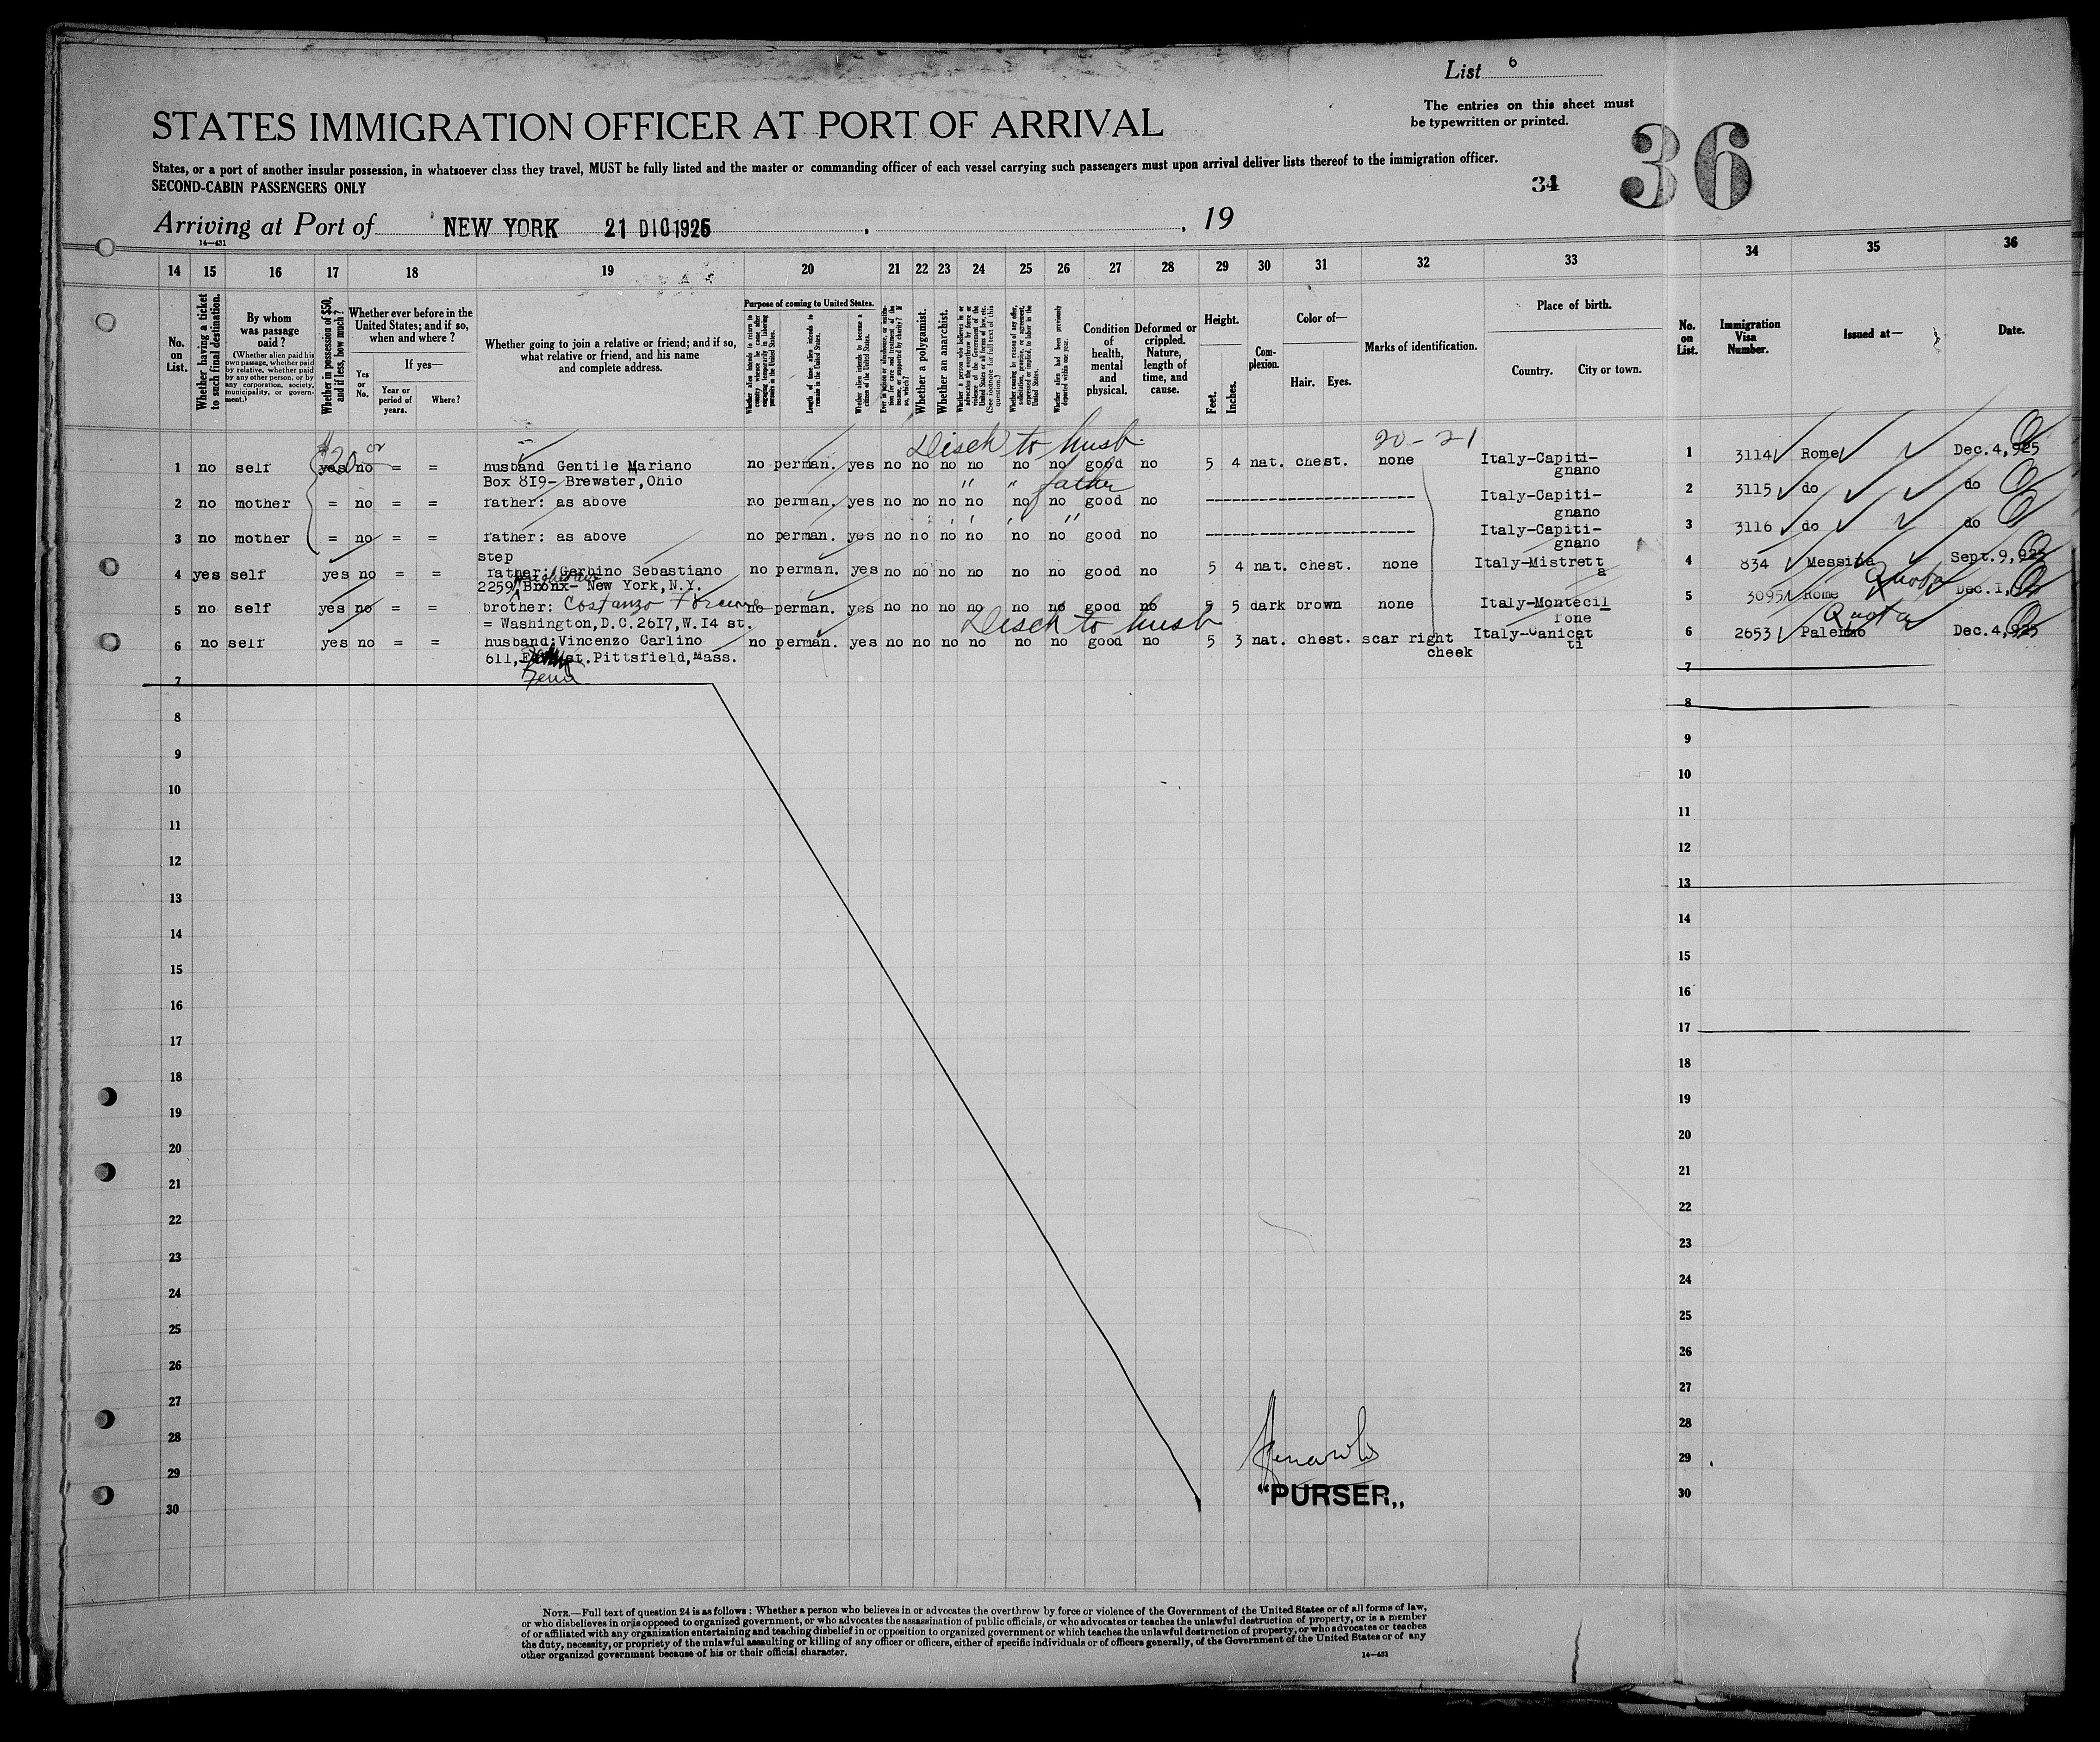 List 6
The entries on this sheet must
be typewritten or printed.
STATES IMMIGRATION OFFICER AT PORT OF ARRIVAL
36
States, or a port of another insular possession, in whatsoever class they travel, MUST be fully listed and the master or commanding officer of each vessel carrying such passengers must upon arrival deliver lists thereof to the immigration officer.
SECOND-CABIN PASSENGERS ONLY
34
Arriving at Port of NEW YORK 21 DIC 1925 , , 19
14—431
14 15 16 17 18 19 20 21 22 23 24 25 26 27 28 29 30 31 32 33 34 35 36
No. on List.
Whether having a ticket to such final destination.
By whom was passage paid?
(Whether alien paid his own passage, whether paid by relative, whether paid by any other person, or by any corporation, society, municipality, or government.)
Whether in possession of $50, and if less, how much?
Whether ever before in the United States; and if so, when and where?
If yes—
Yes or No.
Year or period of years.
Where?
Whether going to join a relative or friend; and if so, what relative or friend, and his name and complete address.
Purpose of coming to United States.
Length of time alien intends to remain in the United States.
Whether alien intends to become a citizen of the United States.
Whether a polygamist.
Whether an anarchist.
Condition of health, mental and physical.
Deformed or crippled. Nature, length of time, and cause.
Height.
Feet.
Inches.
Complexion.
Color of—
Hair. Eyes.
Marks of identification.
Place of birth.
Country. City or town.
No. on List.
Immigration Visa Number.
Issued at—
Date.
Disch to husb. 20-21
$20 or
1 no self yes no = = husband Gentile Mariano no perman. yes no no no no no no good no 5 4 nat. chest. none Italy-Capiti- 1 3114 Rome Dec.4,925
gnano
Box 819- Brewster,Ohio " " father
2 no mother = no = = father: as above no perman. yes no no no no no no good no Italy-Capiti- 2 3115 do do
gnano
3 no mother = no = = father: as above no perman. yes no no no no no no good no Italy-Capiti- 3 3116 do do
gnano
step
4 yes self yes no = = father: Gerbino Sebastiano no perman. yes no no no no no no good no 5 4 nat. chest. none Italy-Mistrett 4 834 Messina Sept.9,925
a
2259 Bronx- New York,N.Y. Quota
5 no self yes no = = brother: Costanzo no perman. yes no no no no no no good no 5 5 dark brown none Italy-Montecil 5 3095 Rome Dec.1,925
fone
= Washington,D.C.2617,W.14 st. Disch to husb Quota
6 no self yes no = = husband:Vincenzo Carlino no perman. yes no no no no no no good no 5 3 nat. chest. scar right Italy-Canicat 6 2653 Palermo Dec.4,925
cheek ti
611, st.Pittsfield,Mass.
Fenn
7 7
8 8
9 9
10 10
11 11
12 12
13 13
14 14
15 15
16 16
17 17
18 18
19 19
20 20
21 21
22 22
23 23
24 24
25 25
26 26
27 27
28 28
29 29
30 30
"PURSER„
NOTE.—Full text of question 24 is as follows: Whether a person who believes in or advocates the overthrow by force or violence of the Government of the United States or of all forms of law,
or who disbelieves in or is opposed to organized government, or who advocates the assassination of public officials, or who advocates or teaches the unlawful destruction of property, or is a member
of or affiliated with any organization entertaining and teaching disbelief in or opposition to organized government or which teaches the unlawful destruction of property, or who advocates or teaches
the duty, necessity, or propriety of the unlawful assaulting or killing of any officer or officers, either of specific individuals or of officers generally, of the Government of the United States or of any
other organized government because of his or their official character.
14—431